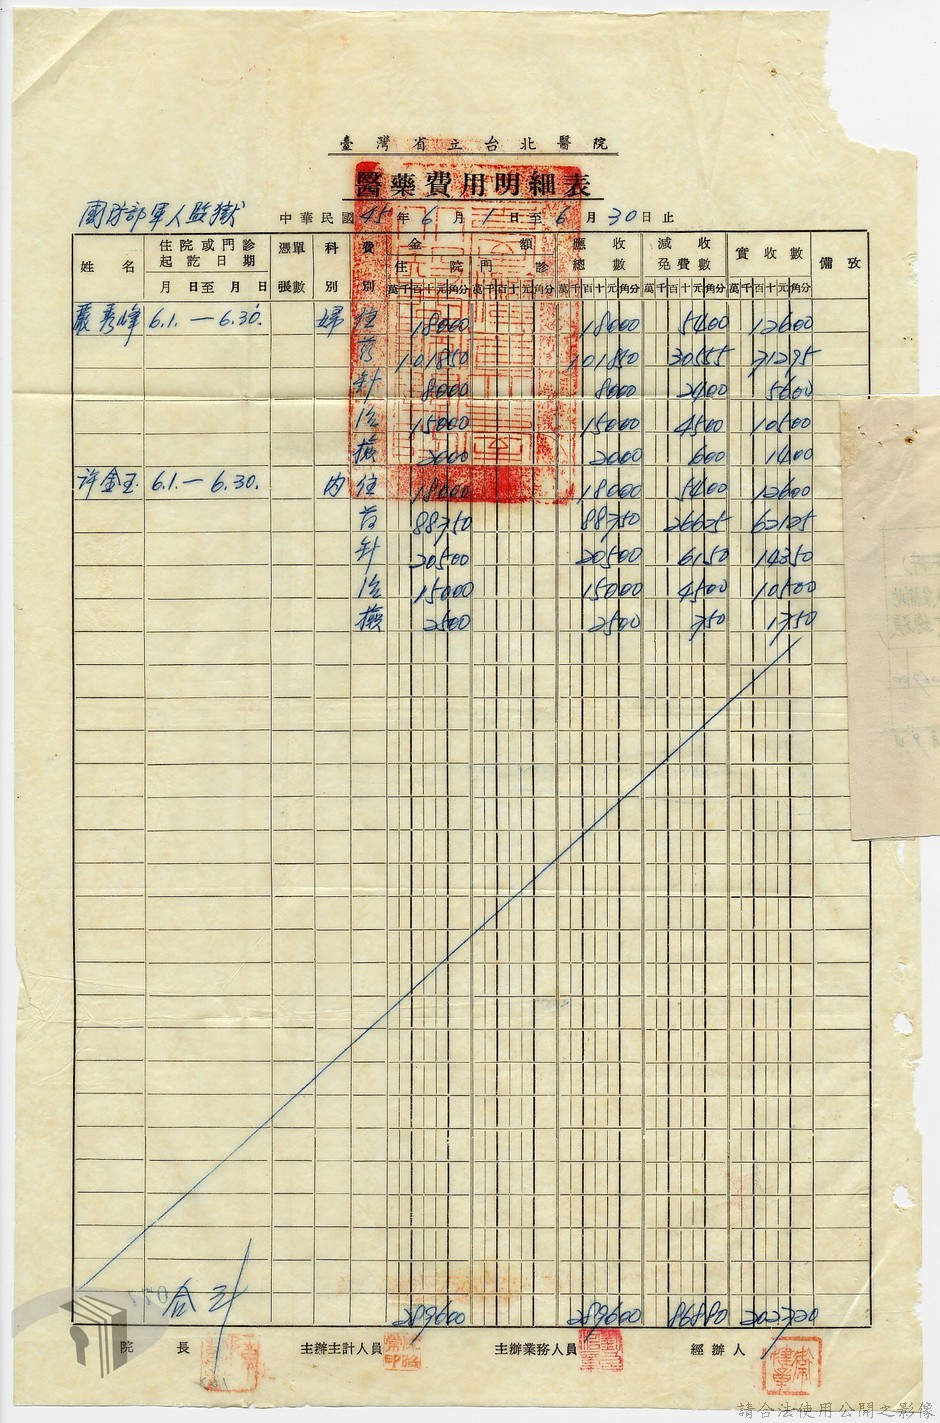 臺灣省立台北醫院
醫藥費用明細表
國防部軍人監獄 中華民國45年6月1日至6月30日止
姓名 住院或門診起訖日期 憑單 科 費 金額 應收 減收 實收數 備攷
月日至月日 張數 別 別 住院 門診 總數 免費數
萬千百十元角分 萬千百十元角分 萬千百十元角分 萬千百十元角分 萬千百十元角分
嚴秀峰 6.1.—6.30. 婦 住 18000 18000 5400 12600
药 101850 101850 30555 71295
針 8000 8000 2400 5600
治 15000 15000 4500 10500
檢 2000 2000 600 1400
许金玉 6.1.—6.30. 內 住 18000 18000 5400 12600
药 88750 88750 26625 62125
針 20500 20500 6150 14350
治 15000 15000 4500 10500
檢 2500 2500 750 1750
合計 289600 289600 86880 202720
院長 主辦主計人員 主辦業務人員 經辦人
請合法使用公開之影像